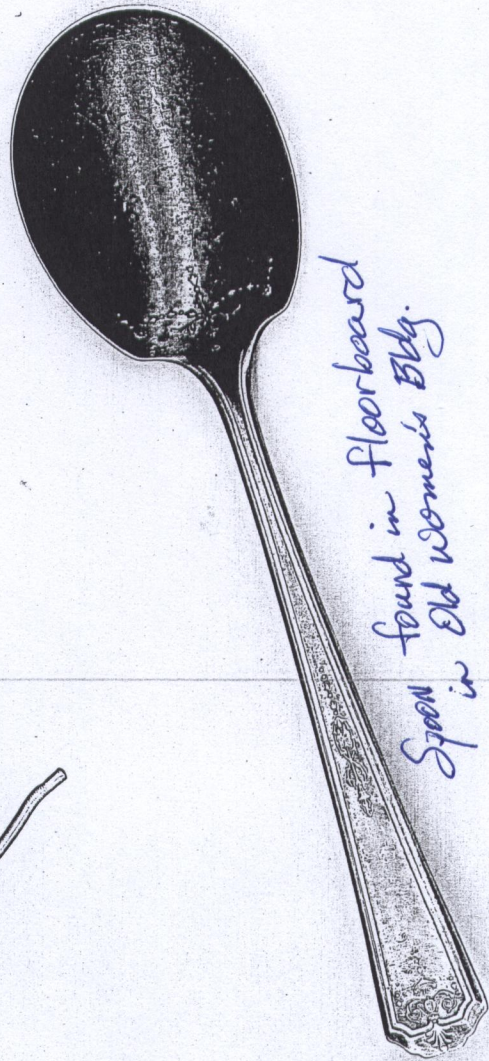 Spoon found in floorboard
in Old Women's Bldg.